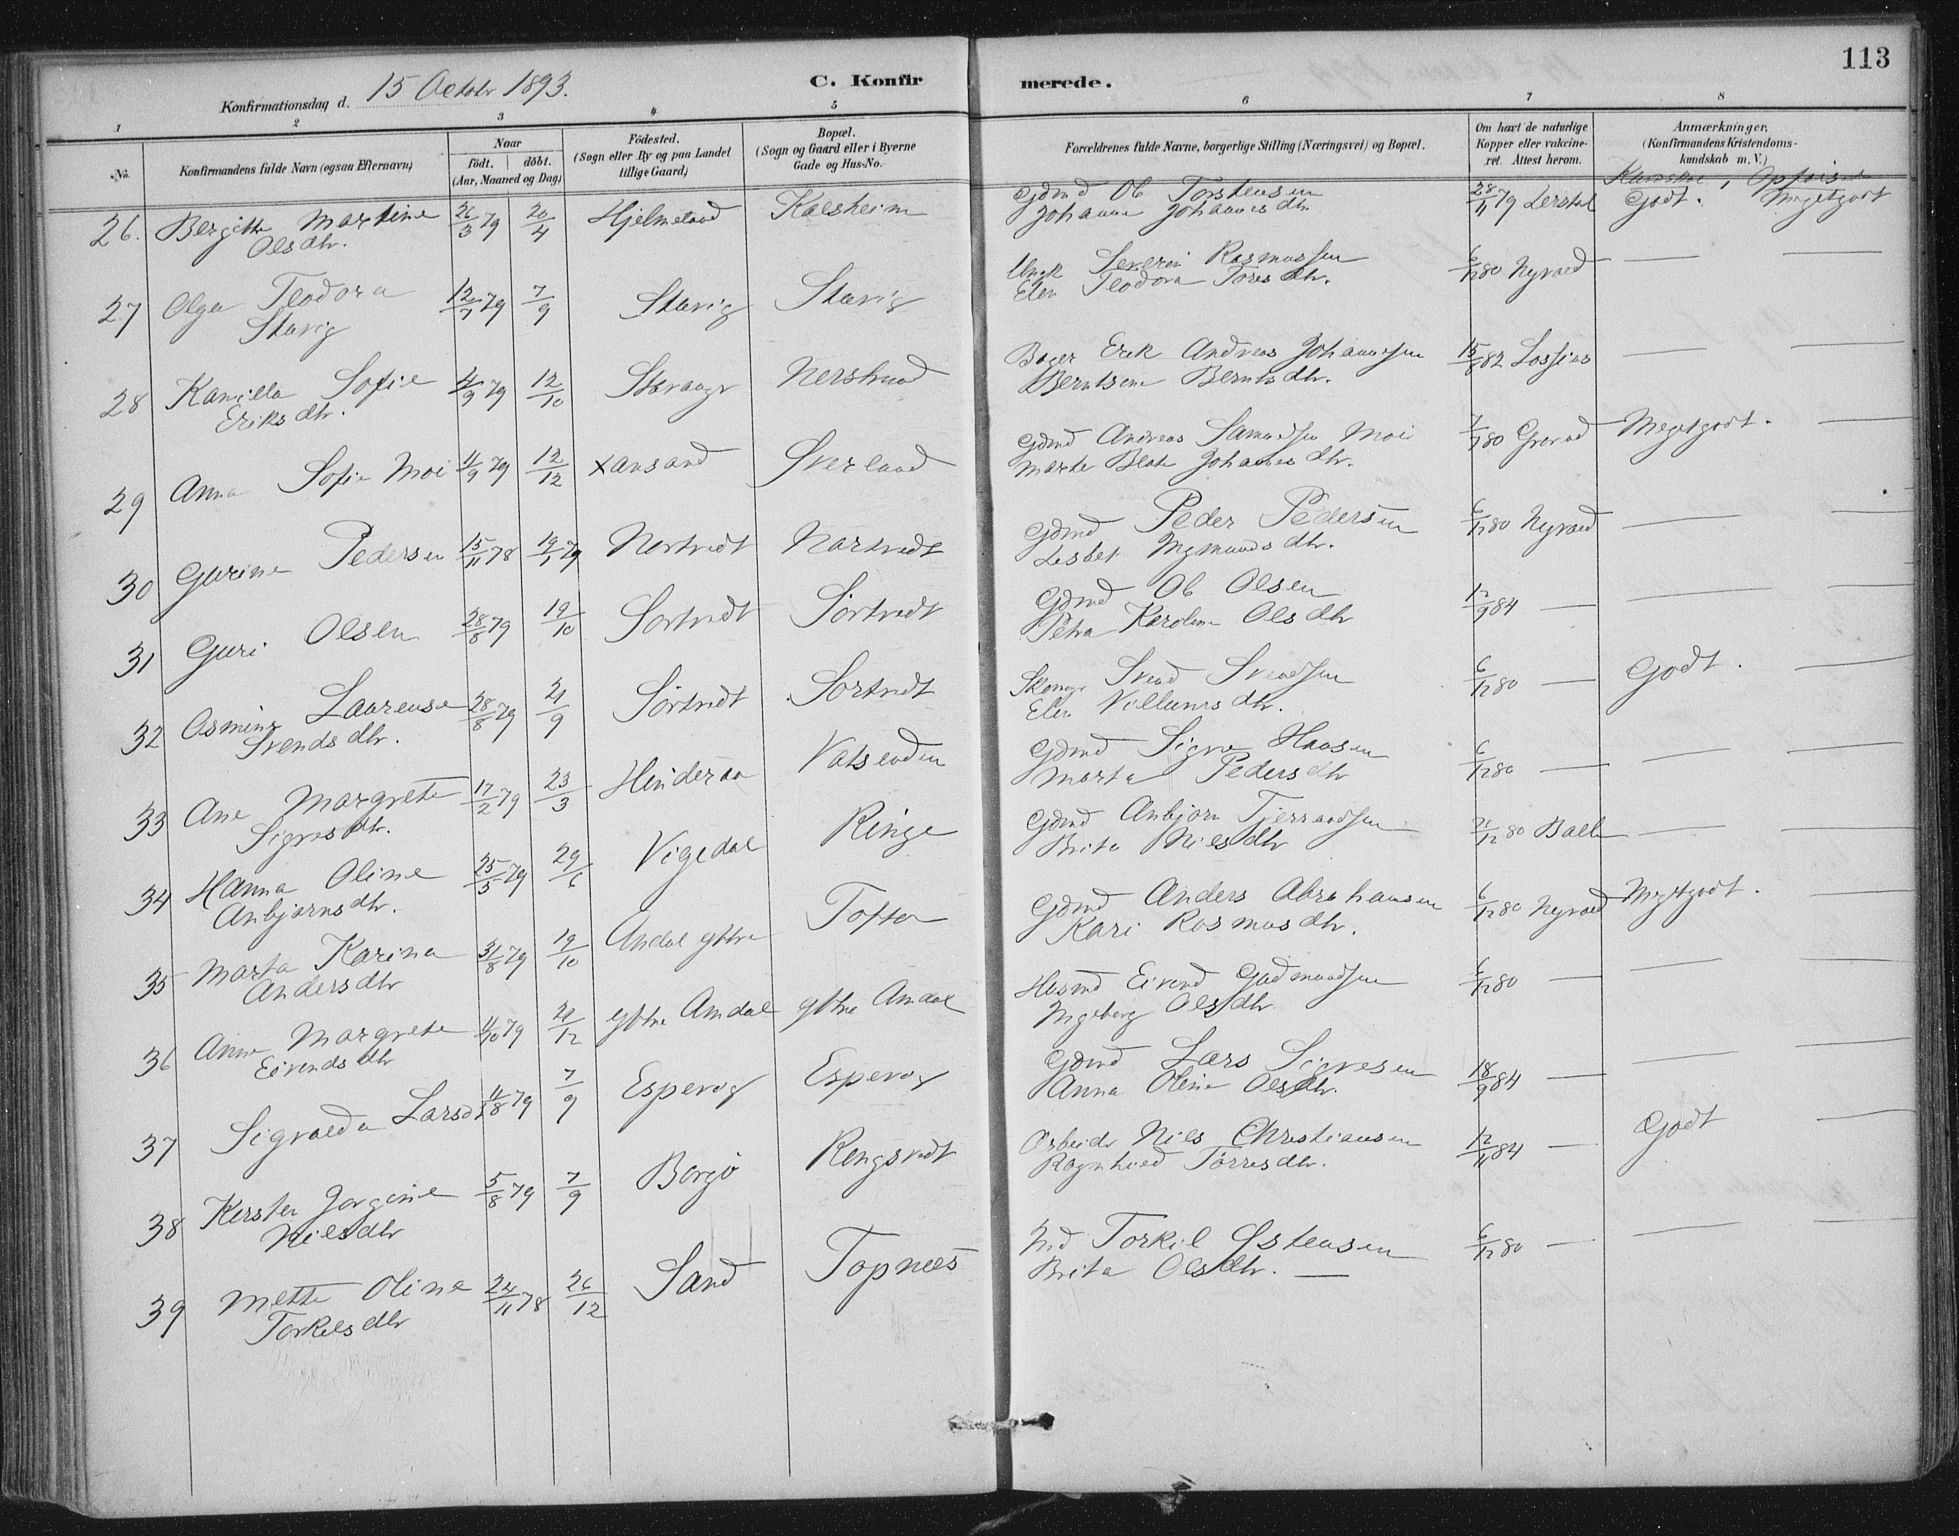 113
15 October 1893.
C. Konfirmerede.
Konfirmationsdag d.
1 2 3 4 5 6 7 8
No. Konfirmandens fulde Navn (ogsaa Efternavn) Naar födt. | döbt. (Aar, Maaned og Dag) Födested. (Sogn eller By og paa Landet tillige Gaard) Bopæl. (Sogn og Gaard eller i Byerne Gade og Hus-No. Forældrenes fulde Navne, borgerlige Stilling (Næringsvei) og Bopæl. Om havt de naturlige Kopper eller vaccineret. Attest herom. Anmærkninger, (Konfirmandens Kristendomskundskab m. V.)
Kundsk. , Opførsel
26. Bergitte Martine 26/3 79 20/4 Hjelmeland Kalsheim Gdmd Ol Torstensen 28/11 79 Lerstul Godt. Megetgodt
Olsdtr. Johanne Johannesdtr.
27 Olga Teodora 12/7 79 7/9 Stavig Stavig Ungk Severin Rasmussen 6/12 80 Nyvold — —
Stavig Elen Teodora Toresdtr.
28 Kamilla Sofie 4/9 79 12/10 Stavanger Nerstrand Bager Erik Andreas Johannesen 15/8 82 Lossius — —
Eriksdtr. Berntsine Berntsdtr.
29 Anna Sofie Moi 4/9 79 12/12 Xansand Sverland Gdmd Andreas Samuelsen Moi 7/7 80 Megetgodt. —
Marte Beate Johannesdtr.
30 Gurine Pedersen 15/11 78 19/1 79 Nortvedt Nortvedt Gdmd Peder Pedersen 6/12 80 Nyvold — —
Lisbet Ingmundsdtr.
31 Guri Olsen 28/8 79 19/10 Sørtvedt Sørtvedt Gdmd Ol Olsen 12/9 84 — — —
Petra Karoline Olsdtr
32 Osmine Laurense 28/8 79 21/9 Sørtvedt Sørtvedt Svend Svendsen 6/12 80 — Godt. —
Svendsdtr. Elen Villumsdtr.
33 Ane Margrete 17/2 79 23/3 Hinderaa Vatsenden Gdmd Sigve Hansen 6/12 80 — — —
Sigvesdtr. Marta Pedersdtr
34 Hanna Oline 25/5 79 29/6 Vigedal Ringe Gdmd Anbjørn Tjerrandsen 21/12 80 — —
Anbjørnsdtr. Brita Nilsdtr
35 Marta Karina 31/8 79 19/10 Amdal yttre Toftor Gdmd Anders Abrahamsen 6/12 80 Nyvold Megetgodt. —
Andersdtr Kari Rasmusdtr.
36 Anne Margrete 4/10 79 21/12 Yttre Amdal Yttre Amdal Husmd Eivend Gudmundsen 6/12 80 — — —
Eivendsdtr Ingeborg Olsdtr.
37 Sigvalda Larsd 4/8 79 7/9 Espevig Espevig Gdmd Lars Sigvesen 18/9 84 — — —
Anna Oline Olsdtr.
38 Kersten Jorgine 5/8 79 7/9 Borgø Rengsvedt Arbeider Nils Christiansen 12/11 84 — Godt —
Nilsdtr Ragnhild Tørresdtr.
39 Mette Oline 24/11 78 26/12 Sand Topnæs Torkil Østensen 6/12 80 — — —
Torkelsdtr Brita Olsdtr. —